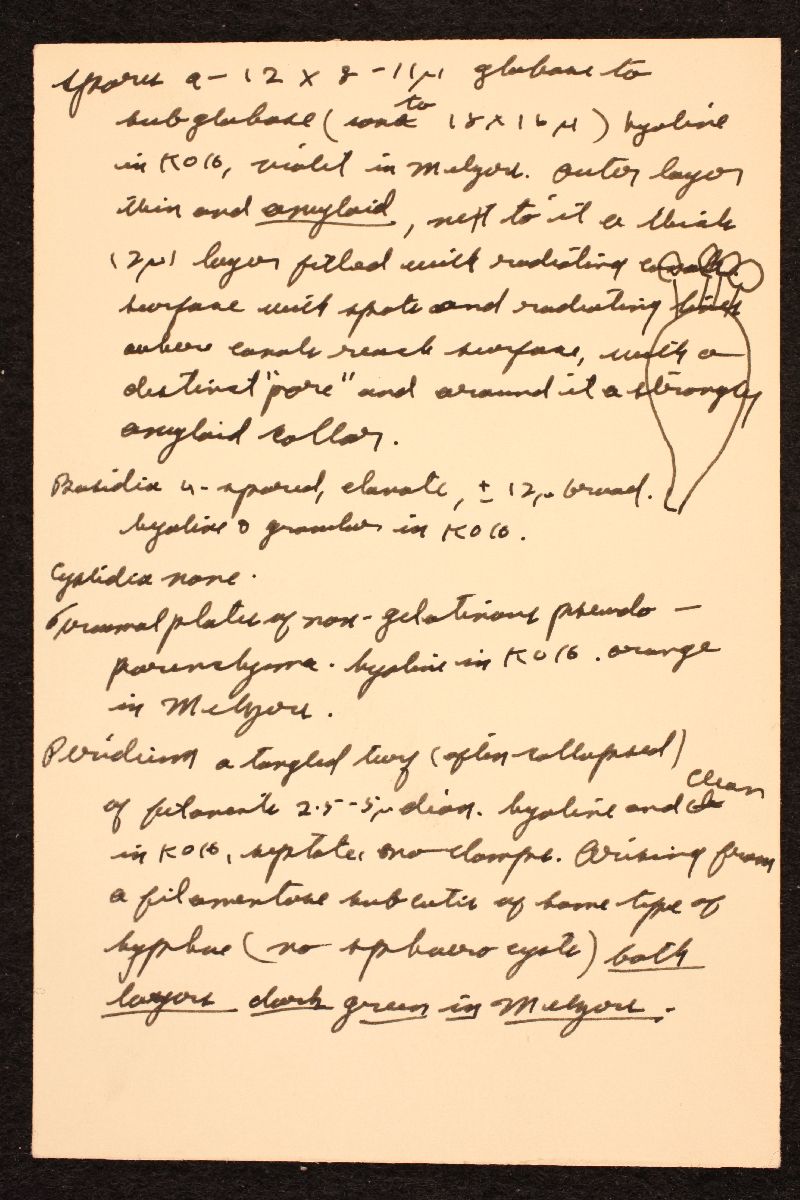 Spores 9-12 x 8-11µ globose to
subglobose (some to 18 x 16 µ) hyaline
in KOH, violet in Melzers. Outer layer
thin and amyloid, next to it a thick
(2µ) layer filled with radiating canals.
surface with spots and radiating lines
where canals reach surface, with a
distinct "pore" and around it a strongly
amyloid collar.
Basidia 4-spored, clavate, ± 12µ broad.
hyaline & granular in KOH.
Cystidia none.
Tramal plates of non-gelatinous pseudo-
parenchyma. hyaline in KOH. orange
in Melzers.
Peridium a tangled turf (often collapsed)
of filaments 2.5-5µ diam. hyaline and clean
in KOH, septate, no clamps. Arising from
a filamentose subcutis of same type of
hyphae (no sphaerocysts) both
layers dark green in Melzers.